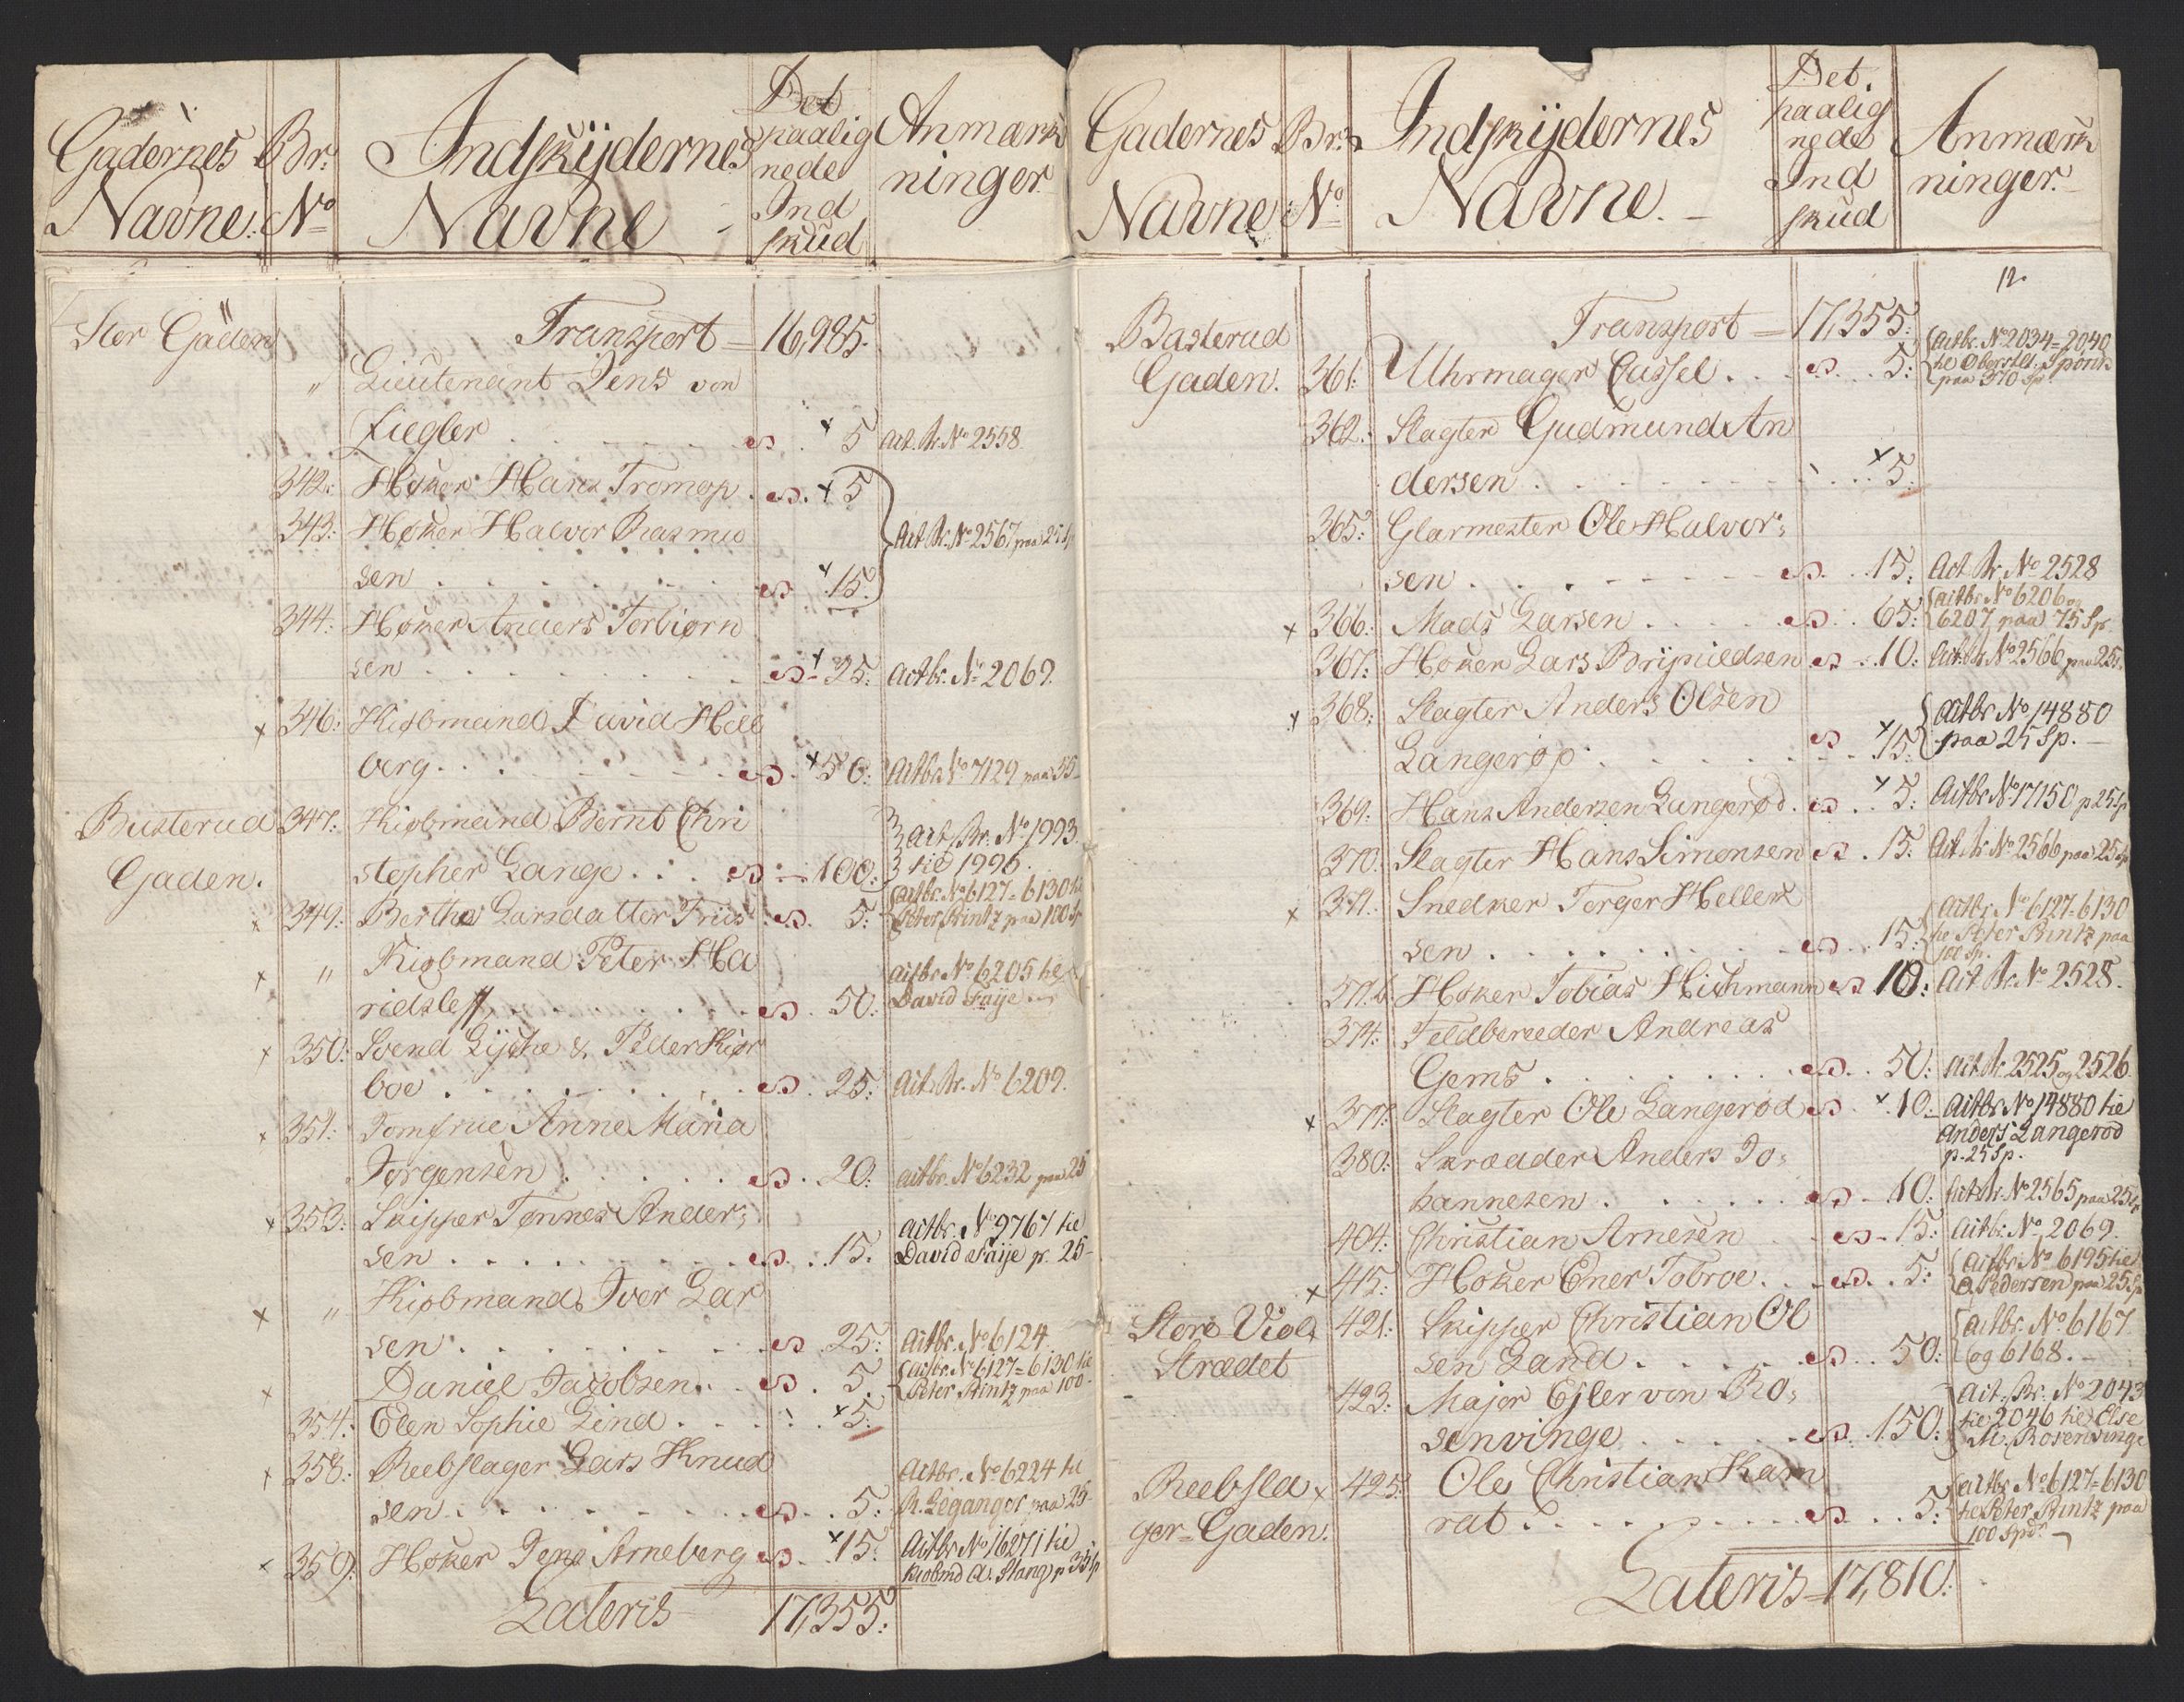 Gadernes Navne:
Br: No
Indskijdernes Navne
Det paalig nede Ind skud
Anmærk ninger
Stor Gaden
Transport = 16,985.
" Lieutenant Jens von
Ziegler . . . . . × 5 Act. Br. No 2558.
342: Høker Hans Tromop . × 5
343: Høker Halvor Rasmus
sen . . . . . × 15. Act. Br. No 2567 paa 25 Sp
344: Høker Anders Torbiørn
sen . . . . . × 25. Actbr. No 2069.
× 346: Kiøbmand David Hell
berg . . . . × 50: Actbr No 7129 paa 55
Busterud Gaden.
347: Kiøbmand Bernt Chri
stopher Lange . . . 100: Act. Br. No 1993. til 1996.
× 349: Berthe Larsdatter Friis . 5: Actbr. No 6127 = 6130 til Peter Rintz paa 100 Sp
× " Kiøbmand Peter Ha
ridsleff . . . . 50: actbr No 6205 til David Faije
× 350: Svend Lijche & Peder Kiær
boe . . . . . 25: Act. Br. No 6209.
× 351: Jomfrue Anne Maria
Jørgensen . . . . 20: actbr. No 6232 paa 25
× 353: Skipper Tønnes Ander;
sen . . . . . 15. actbr. No 9767 til David Faije p. 25-
× " Kiøbmand Iver Lar
sen . . . . . 25: Actbr. No 6124.
× Daniel Jacobsen . . 5. actbr. No 6127 = 6130 til Peter Rintz paa 100-
354: Elen Sophie Lind . . . × 5:
× 358: Reebslager Lars Knud
sen . . . . . 5: Actbr. No 6224 til R. Leganger paa 25-
× 359: Høker Jens Arneberg . × 15: Actbr No 16271 til Kiøbmd A. Stang p 35 Sp
Lateris 17,355:
Gadernes Navne:
Br: No
Indskijdernes Navne.
Det paalig nede Ind skud
Anmærk ninger.
12.
Basterud Gaden.
Transport = 17,355:
361: Uhrmager Cassel . . . 5: Actbr. No 2034 = 2040 til Oberstlt. Sponk paa 370 Sp
362: Slagter Gudmund An
dersen . . . . . × 5:
365: Glarmester Ole Halvor;
sen . . . . . 15: Act Br. No 2528
× 366: Mads Larsen . . . . 65: actbr No 6206 og 6207 paa 75 Sp
367: Høker Lars Brijnildsen . 10: Act. Br. No 2566 paa 25 Sp
× 368: Slagter Anders Olsen
Langerøp . . . . × 15: Actbr No 14880 paa 25 Sp.
369: Hans Andersen Langerød . × 5: Actbr No 17150 p 25 Sp
370: Slagter Hans Simensen . 15: Act Br No 2566 paa 25 Sp
× 371: Snedker Torger Hellek
sen . . . . . 15: Actbr. No 6127-6130 til Peter Rintz paa 100 Sp.
371.b Høker Tobias Hichmann 10: Act Br. No 2528.
374: Feldbereeder Andreas
Gems . . . . . 50: Act. Br. 2525 og 2526.
× 377: Slagter Ole Langerød × 10: Actbr No 14880 til Anders Langerød p. 25 Sp.
380: Skrædder Anders Jo;
hannesen . . . . 10: Act. Br. No 2565 paa 25 Sp
404: Christian Arnesen . . 15: Actbr. No 2069.
× 415: Høker Ener Tobroe . . . 5: Actbr. No 6195 til O. Pedersen paa 25 Sp
Store Viol Strædet
421: Skipper Christian Ol
sen Land . . . . 50: actbr. No 6167. og 6168.
423: Major Ejler von Ro;
senvinge . . . . 150: Act. Br. No 2043 til 2046 til Else M. Rosenvinge
Reebsla ger-Gaden.
× 425: Ole Christian Kam
rat . . . . . 5: actbr No 6127 = 6130 til Peter Rintz paa 100 Spd.
Lateris = 17,810: